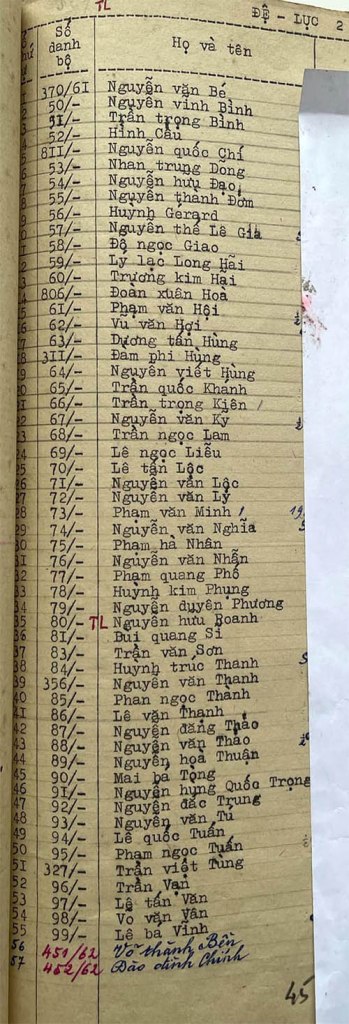 TL
ĐỆ - LỤC 2
Số danh bộ Họ và tên
370/6I Nguyễn văn Bé
50/- Nguyễn vĩnh Bình
5I/- Trần trọng Bình
52/- Hình Cẩu
8II/- Nguyễn quốc Chí
53/- Nhan trung Dõng
54/- Nguyễn hưu Đạo
55/- Nguyễn thành Đởm
56/- Huỳnh Gérard
57/- Nguyễn thế Lê Giả
58/- Đỗ ngọc Giao
59/- Lý lạc Long Hãi
60/- Trương kim Hải
806/- Đoàn xuân Hoà
6I/- Phạm văn Hội
62/- Vũ văn Hợi
63/- Dương tấn Hùng
3II/- Đàm phi Hùng
64/- Nguyễn viết Hùng
65/- Trần quốc Khánh
66/- Trần trọng Kiên
67/- Nguyễn văn Ký
68/- Trần ngọc Lam
69/- Lê ngọc Liễu
70/- Lê tấn Lộc
7I/- Nguyễn văn Lộc
72/- Nguyễn văn Lý
73/- Phạm văn Minh
74/- Nguyễn văn Nghĩa
75/- Phạm hà Nhân
76/- Nguyễn văn Nhẫn
77/- Phạm quang Phổ
78/- Huỳnh kim Phụng
79/- Nguyễn duyên Phương
80/- TL Nguyễn hưu Roanh
8I/- Bùi quang Sĩ
83/- Trần văn Sơn
84/- Huỳnh trúc Thanh
356/- Nguyễn văn Thanh
85/- Phan ngọc Thành
86/- Lê văn Thanh
87/- Nguyễn đăng Thảo
88/- Nguyễn văn Thảo
89/- Nguyễn hoà Thuận
90/- Mai bá Tòng
9I/- Nguyễn hưng Quốc Trọng
92/- Nguyễn đắc Trung
93/- Nguyễn văn Tú
94/- Lê quốc Tuấn
95/- Phạm ngọc Tuấn
327/- Trần viết Tùng
96/- Trần Vạn
97/- Lê tấn Văn
98/- Võ văn Vân
99/- Lê bá Vĩnh
56 451/62 Võ thành Bên
57 452/62 Đào đình Chính
45